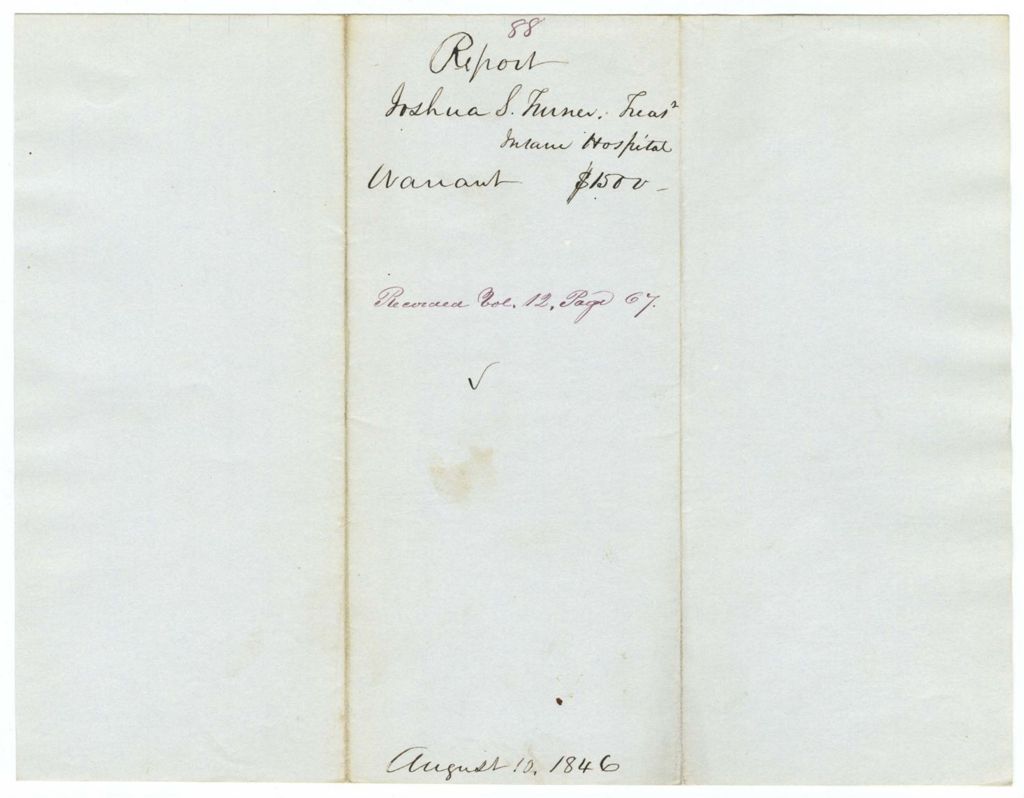 88
Report
Joshua S. Turner, Treasr
Insane Hospital
Warrant $1500-
Recorded Vol. 12, Page 67.
August 10, 1846